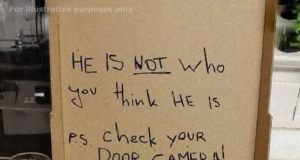 For illustrative purposes only
HE IS NOT WHO
you think HE IS
P.S. check YOUR
DOOR CAMERA!